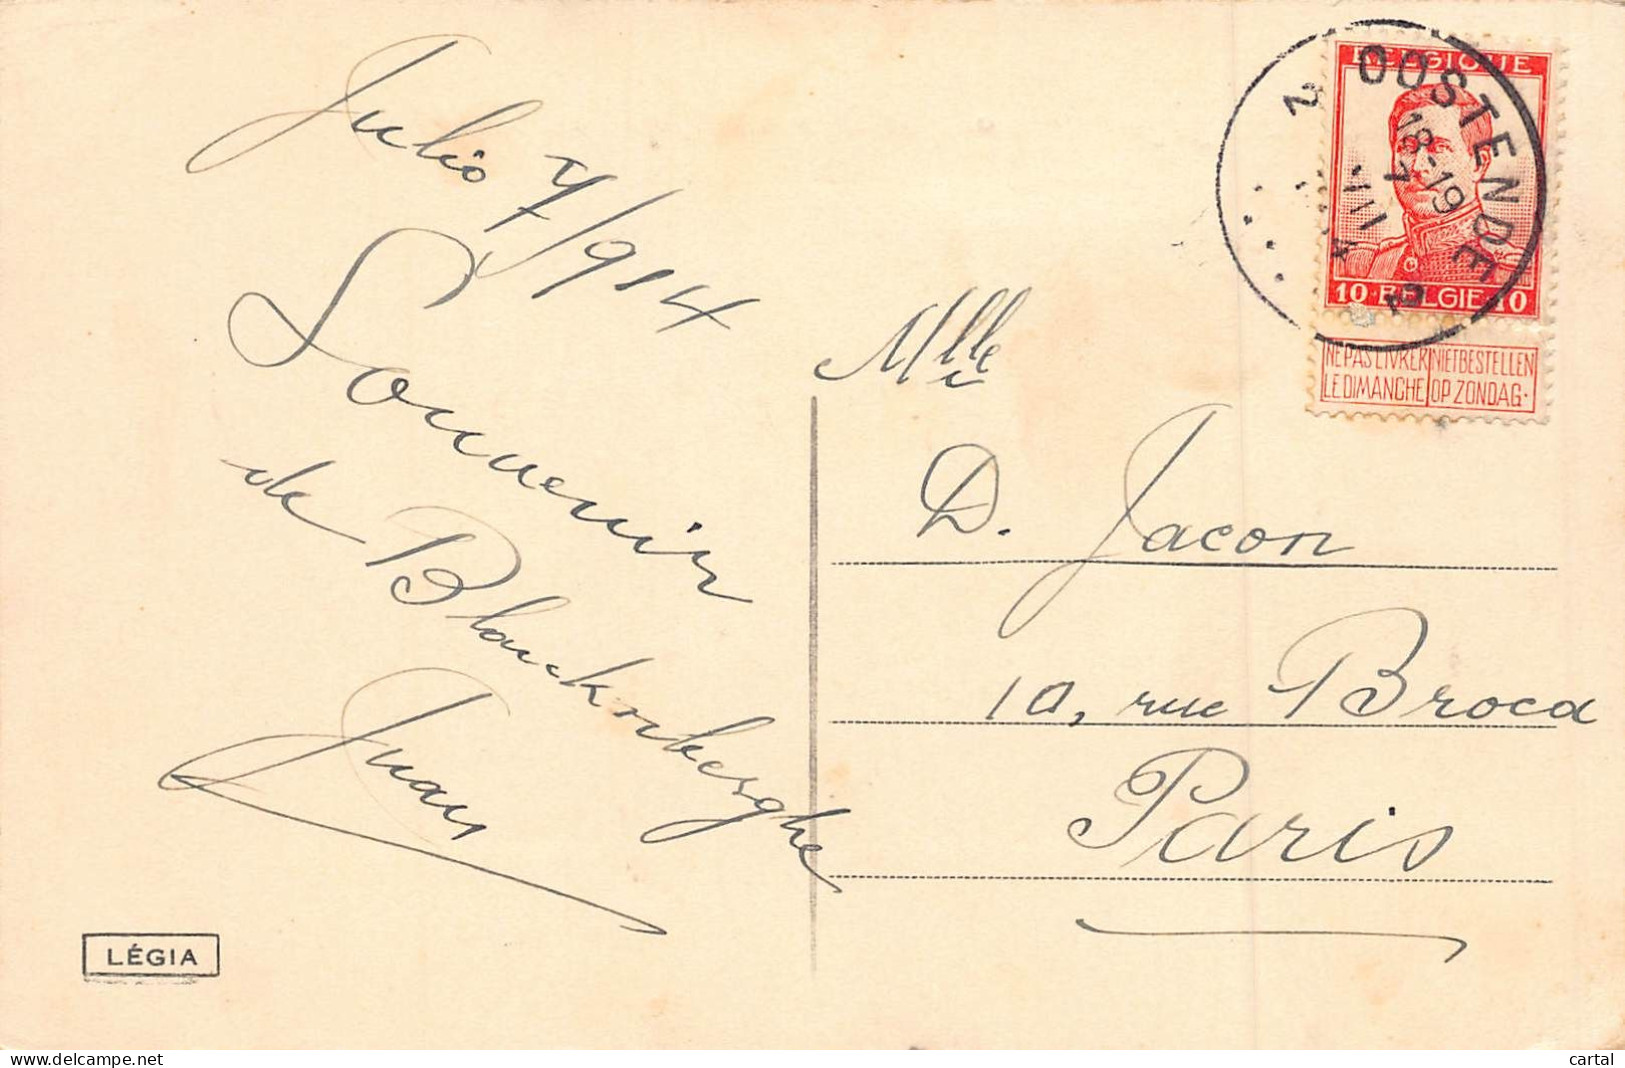 Julio 7/914
Souvenir
de Blankenberghe
Juan
LÉGIA
Mlle
D. Jacon
10, rue Broca
Paris
BELGIQUE
10 BELGIE 10
NE PAS LIVRER LE DIMANCHE
NIET BESTELLEN OP ZONDAG.
OOSTENDE 2
18-19
7
VII
2
delcampe.net
cartal